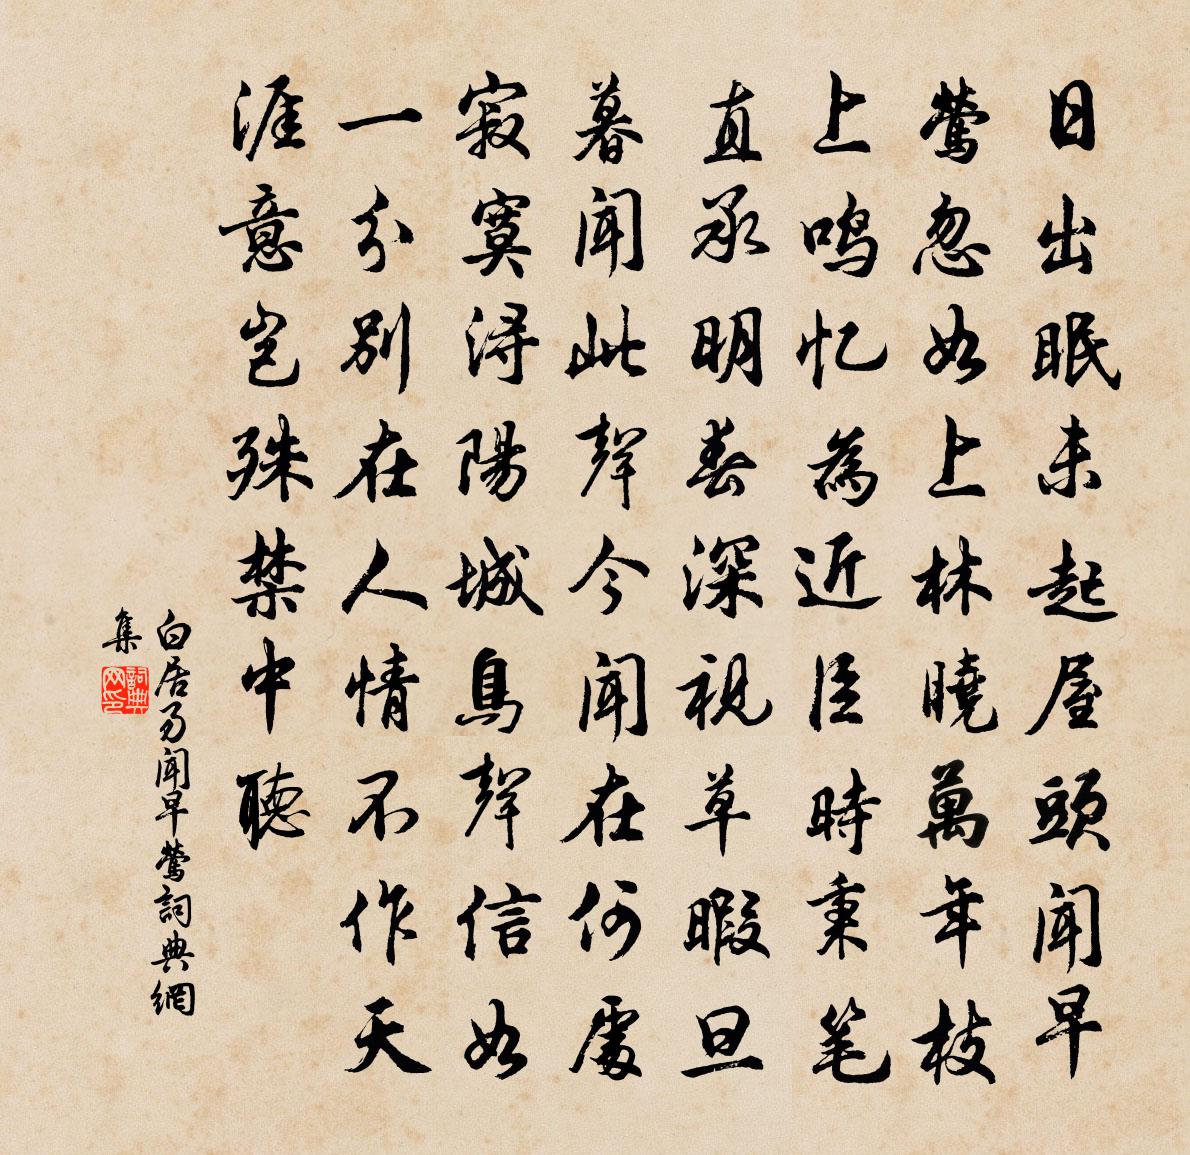 日出眠未起屋頭聞早
鶯忽如上林曉萬年枝
上鳴忆為近臣時秉笔
直承明春深視草暇旦
暮聞此聲今聞在何處
寂寞浔陽城鳥聲信如
一分別在人情不作天
涯意豈殊禁中聽
白居易聞早鶯詞典網
集
詞典
网印